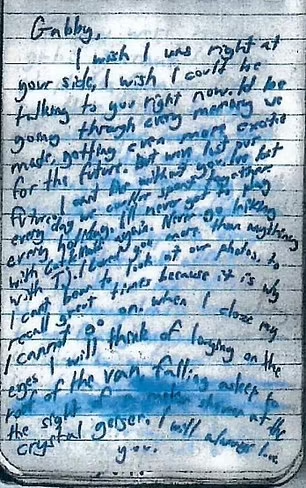 Gabby,
I wish I was right at
your side, I wish I could be
talking to you right now. Id be
going through every memory we
made, getting even more excited
for the future. But we've lost our
future. I can't live without you. I've lost
every day we could've spent together,
every holiday. I'll never get to play
with again. Never go hiking
with TJ. I loved you more than anything
I can't bear to look at our photos, to
recall great times because it is why
I cannot go on. When I close my
eyes I will think of laughing on the
roof of the van, falling asleep to
the sight of shower at the
crystal geyser. I will always love
you.